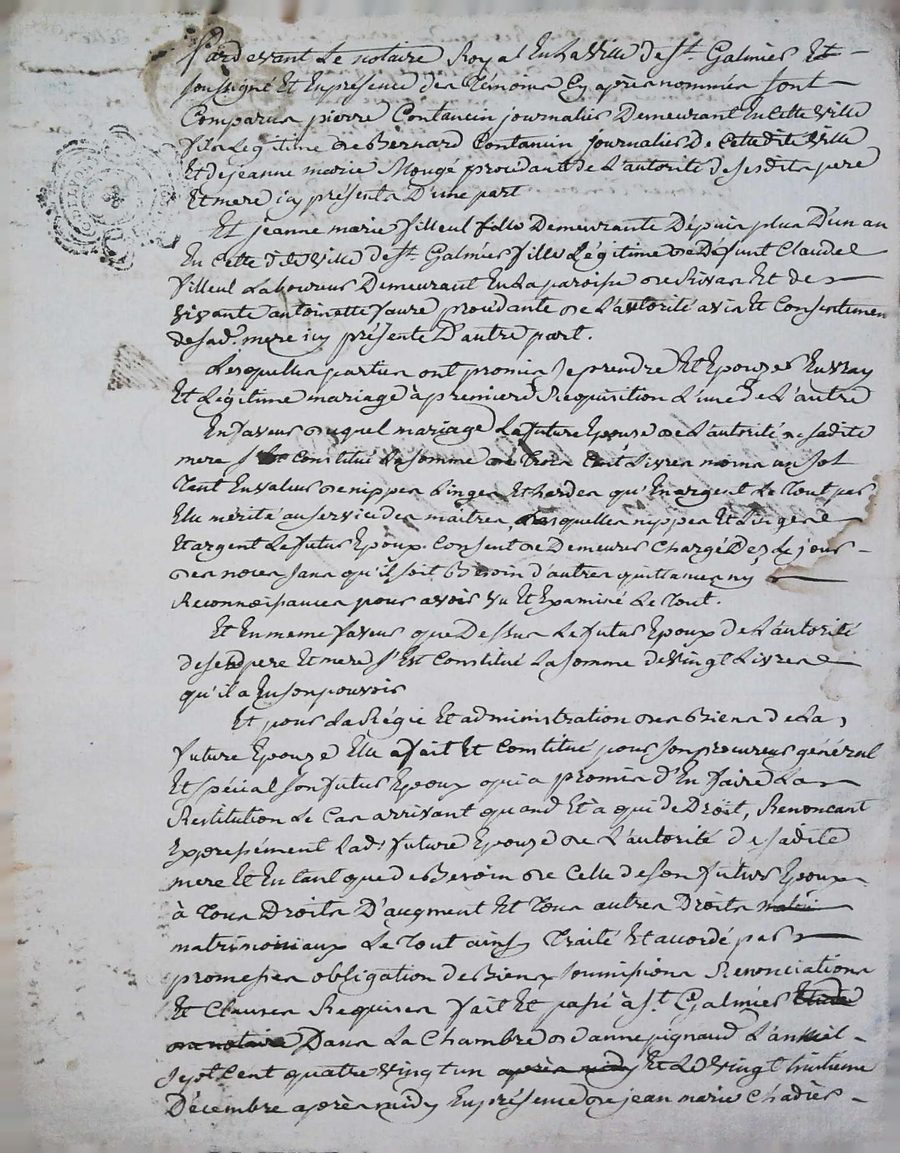 Pardevant Le notaire Royal En La Ville de St. Galmier Et
soussigné Et En présence des Témoins Cy après nommés sont
Comparus pierre Contancin journalier Demeurant En Cette Ville
fils Légitime de Bernard Contancin journalier De Cette dite Ville
Et de jeanne marie Mougé procédant de L'autorité de sesdits pere
Et mere icy présents D'une part
Et jeanne marie filleul fille Demeurante Dépuis plus D'un an
En Cette dite Ville de St. Galmier fille Légitime de Défunt Claude
filleul Laboureur Demeurant En La paroisse de Rivas Et de
vivante antoinette faure procédante de L'autorité avis Et Consentement
de sad. mere icy présente D'autre part.
Lesquelles parties ont promis se prendre Et Epouser En vray
Et Légitime mariage à premiere Réquisition L'une de L'autre
En faveur duquel mariage La future Epouse de L'autorité de sadite
mere s'Est Constitué La somme de trois Cent Livres moins un sol
Tant En valeur de nippes Linges Et hardes qu'En argent Le Tout par
Elle mérité au service des maîtres, Lesquelles nippes Et Linge
Et argent Le futur Epoux Consent de Demeurer Chargé Dez Le jour
des noces sans qu'il soit Besoin d'autres quittances ny
Reconnoissances pour avoir vu Et Examiné Le Tout.
Et En meme faveur que Dessus Le futur Epoux de L'autorité
de sesd pere Et mere s'Est Constitué La somme de vingt Livres
qu'il a En son pouvoir
Et pour La Régie Et administration des Biens de La
future Epouse Elle a fait Et Constitué pour son procureur général
Et spécial son futur Epoux qui a promis d'En faire La
Restitution Le Cas arrivant quand Et à qui de Droit, Renonçant
Expressément Lad. future Epouse de L'autorité de sadite
mere Et En tant que de Besoin de Celle de son futur Epoux
à Tous Droits D'augment Et Tous autres Droits
matrimoniaux Le Tout ainsy Traité Et accordé par
promesses obligation de Biens soumissions Renonciations
Et Clauses Requises fait Et passé à St. Galmier Etude
du notaire Dans La Chambre d'anne pignaud L'an mil
sept Cent quatre vingt un après midy Et Le Vingt huitieme
Décembre après midy En présence de jean marie Chadier